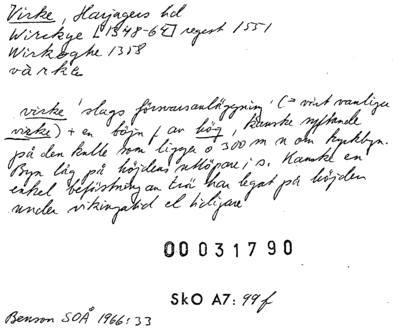 Virke, Harjagers hd
Wirckye [1348-69] regest 1551
Wirkøghe 1358
värka
virke 'slags försvarsanläggning' (= vårt vanliga
virke) + en böjn.f. av hög, kanske syftande
på den kulle som ligger ö 300 m n om kyrkbyn.
Byn låg på höjdens utlöpare i s. Kanske en
enkel befästning av trä har legat på höjden
under vikingatid el tidigare
00031790
SkO A7: 99 f
Benson SOÅ 1966:33